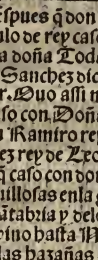 espues q̃ don
ulo de rey caso
a doña Toda
Sanchez dic
r. Quo assi n
so con Doña
Ramiro re
ez rey de Leo
q̃ caso con don
uillosas en la g
antabria y dele
ino hasta N
las hazañas